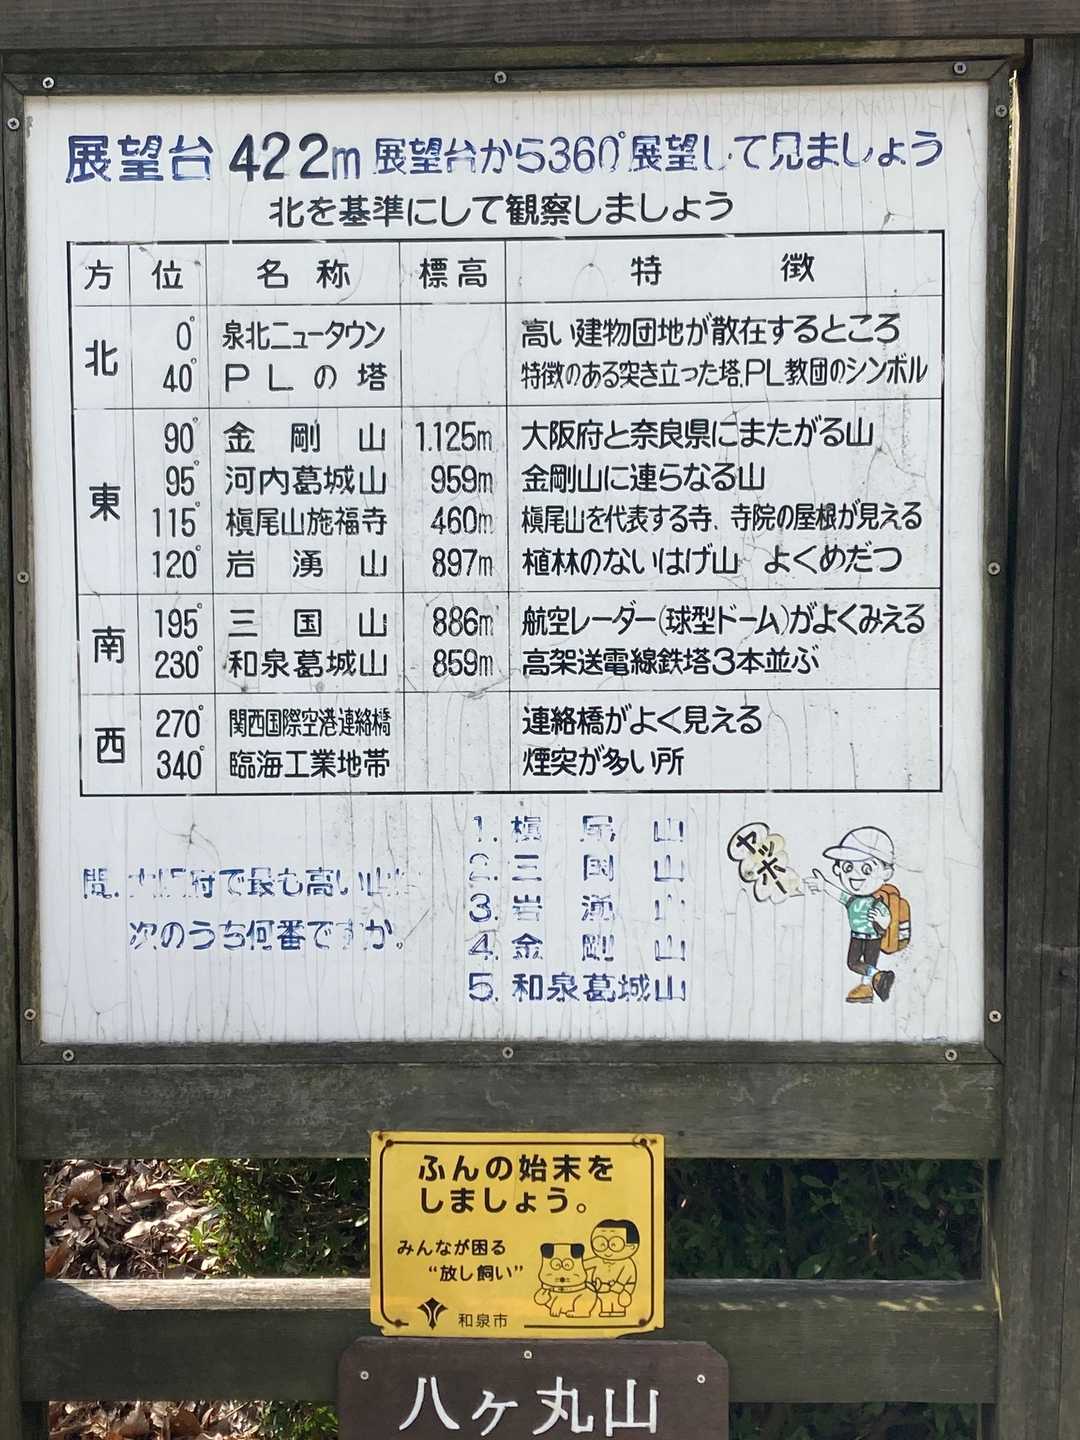 展望台 422m 展望台から360°展望して見ましょう
北を基準にして観察しましょう
方 位 名 称 標高 特 徴
北 0° 泉北ニュータウン 高い建物団地が散在するところ
40° PLの塔 特徴のある突き立った塔、PL教団のシンボル
東 90° 金剛山 1.125m 大阪府と奈良県にまたがる山
95° 河内葛城山 959m 金剛山に連らなる山
115° 槇尾山施福寺 460m 槇尾山を代表する寺、寺院の屋根が見える
120° 岩湧山 897m 植林のないはげ山 よくめだつ
南 195° 三国山 886m 航空レーダー(球型ドーム)がよくみえる
230° 和泉葛城山 859m 高架送電線鉄塔3本並ぶ
西 270° 関西国際空港連絡橋 連絡橋がよく見える
340° 臨海工業地帯 煙突が多い所
問. 大阪府で最も高い山は
次のうち何番ですか。
1. 槇尾山
2. 三国山
3. 岩湧山
4. 金剛山
5. 和泉葛城山
ヤッホー
ふんの始末を
しましょう。
みんなが困る
“放し飼い”
和泉市
八ヶ丸山